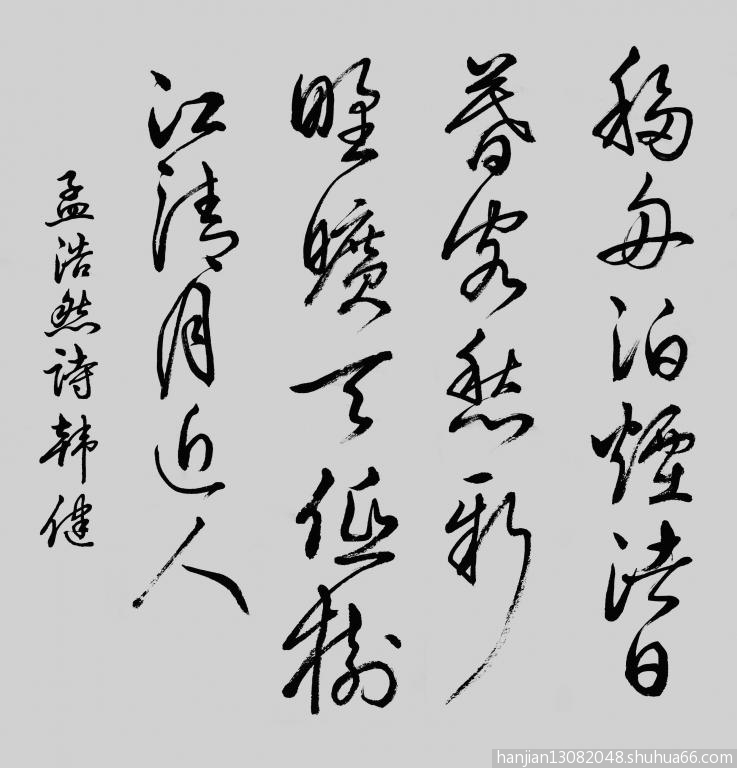 移舟泊煙渚日
暮客愁新
野曠天低樹
江清月近人
孟浩然詩韩健
hanjian13082048.shuhua66.com